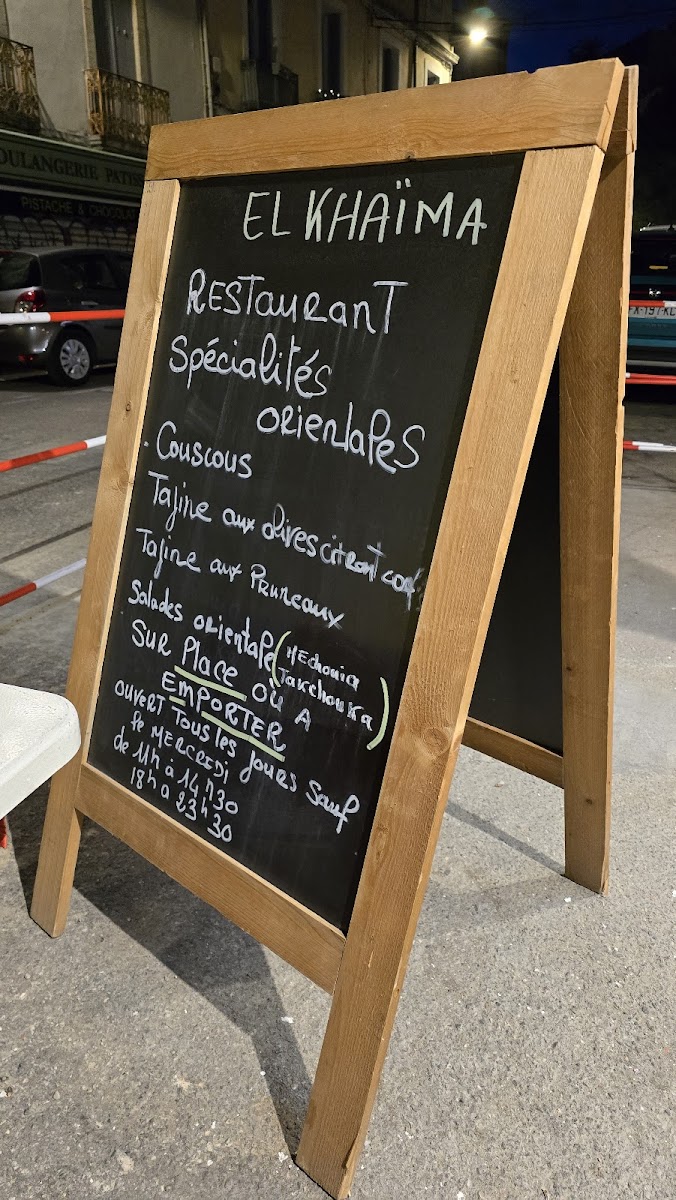 BOULANGERIE PATIS
PISTACHE & CHOCOLAT
EL KHAÏMA
RESTauRanT
Spécialités
ORIENTALES
. Couscous
Tajine aux olives citront conf
Tajine aux PRuneaux
Salades orientale (MEchouia
Takchouka)
SUR Place OÙ A
EMPORTER
OUVERT TOUS les jours Sauf
le MERCREDI
de 11h à 14h30
18h a 23h30